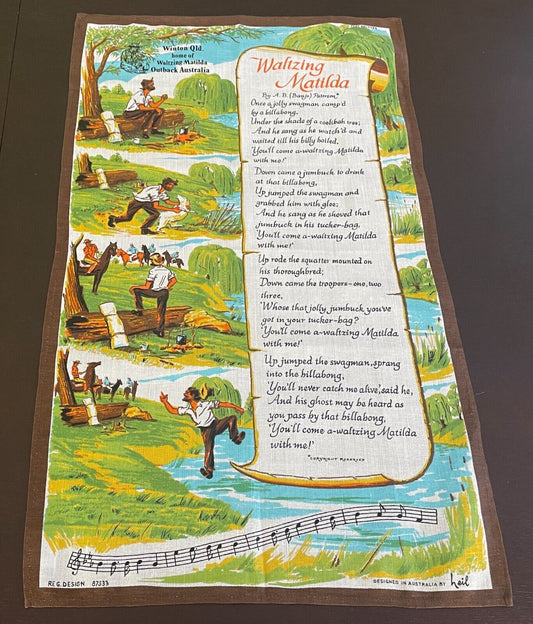 Winton Qld
home of
Waltzing Matilda
Outback Australia
Waltzing
Matilda
By A. B. (Banjo) Paterson*
Once a jolly swagman camp'd
by a billabong,
Under the shade of a coolibah tree;
And he sang as he watch'd and
waited till his billy boiled,
'You'll come a-waltzing Matilda
with me!'
Down came a jumbuck to drink
at that billabong,
Up jumped the swagman and
grabbed him with glee;
And he sang as he shoved that
jumbuck in his tucker-bag,
'You'll come a-waltzing Matilda
with me!'
Up rode the squatter mounted on
his thoroughbred;
Down came the troopers-one, two
three,
'Whose that jolly jumbuck you've
got in your tucker-bag?
'You'll come a-waltzing Matilda
with me!'
Up jumped the swagman, sprang
into the billabong,
'You'll never catch me alive,' said he,
And his ghost may be heard as
you pass by that billabong,
'You'll come a-waltzing Matilda
with me!'
*COPYRIGHT RESERVED
REG. DESIGN 87533
DESIGNED IN AUSTRALIA BY heil